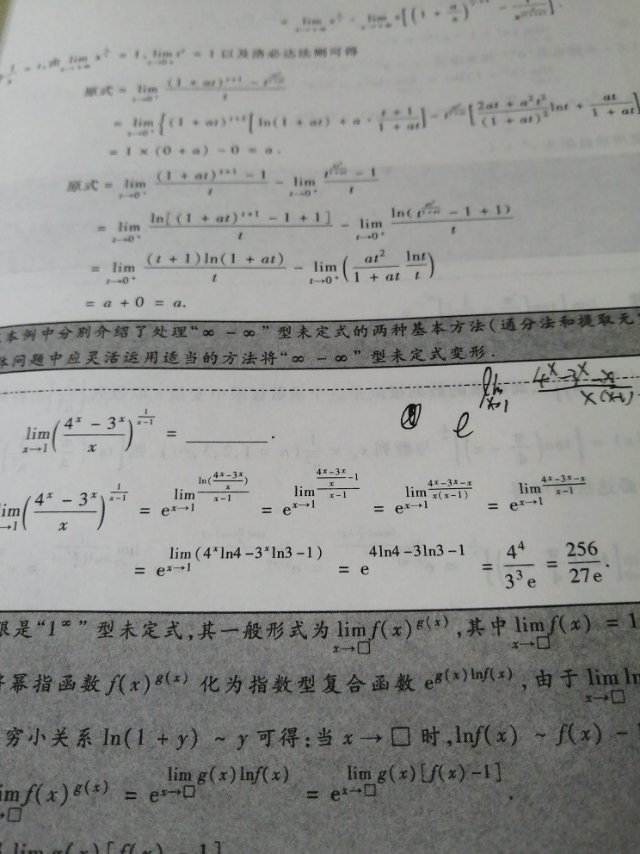 = t, 由 lim x = 1, lim t^t = 1 以及洛必达法则可得
原式 = lim_{t→0⁺} ((1 + at)^{t+1} − t^{at²/(1+at)})/t
= lim_{t→0⁺} {(1 + at)^{t+1}[ln(1 + at) + a · (t + 1)/(1 + at)] − t^{at²/(1+at)}[(2at + a²t²)/(1 + at)² lnt + at/(1 + at)]
= 1 × (0 + a) − 0 = a.
原式 = lim_{t→0⁺} ((1 + at)^{t+1} − 1)/t − lim_{t→0⁺} (t^{at²/(1+at)} − 1)/t
= lim_{t→0⁺} ln[(1 + at)^{t+1} − 1 + 1]/t − lim_{t→0⁺} ln(t^{at²/(1+at)} − 1 + 1)/t
= lim_{t→0⁺} (t + 1)ln(1 + at)/t − lim_{t→0⁺} (at²/(1 + at) · lnt/t)
= a + 0 = a.
本例中分别介绍了处理“∞ − ∞”型未定式的两种基本方法(通分法和提取无
体问题中应灵活运用适当的方法将“∞ − ∞”型未定式变形.
e lim_{x→1} (4^x − 3^x − x)/
lim_{x→1} ((4^x − 3^x)/x)^{1/(x−1)} = ________.
lim_{x→1} ((4^x − 3^x)/x)^{1/(x−1)} = e^{lim_{x→1} ln((4^x−3^x)/x)/(x−1)} = e^{lim_{x→1} ((4^x−3^x)/x −1)/(x−1)} = e^{lim_{x→1} (4^x−3^x−x)/(x(x−1))} = e^{lim_{x→1} (4^x−3^x−x)/(x−1)}
= e^{lim_{x→1} (4^x ln4−3^x ln3−1)} = e^{4ln4−3ln3−1} = 4⁴/(3³e) = 256/(27e).
限是“1^∞”型未定式,其一般形式为 lim_{x→□} f(x)^{g(x)},其中 lim_{x→□} f(x) = 1
幂指函数 f(x)^{g(x)} 化为指数型复合函数 e^{g(x)lnf(x)},由于 lim_{x→□} ln
穷小关系 ln(1 + y) ~ y 可得:当 x → □ 时,lnf(x) ~ f(x) −
lim_{x→□} f(x)^{g(x)} = e^{lim_{x→□} g(x)lnf(x)} = e^{lim_{x→□} g(x)[f(x)−1]}.
lim g(x)[f(x) − 1]